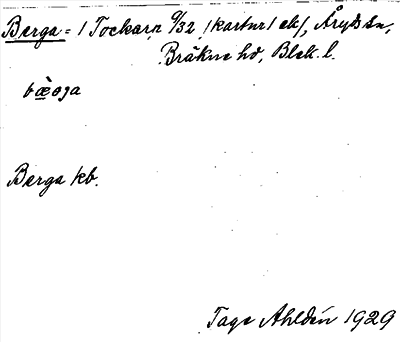 Berga = / Tockarn 9/32 /kartur/ ek/, Åryds sn,
Bräkne hd, Blek. l.
bæ̀rga
Berga kb.
Tage Ahldén 1929